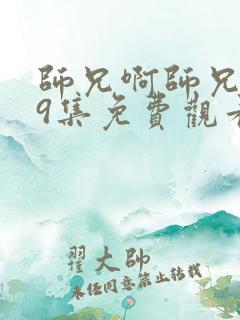 師兄啊師兄
9集免費觀看
翟大帥
未經同意禁止轉載